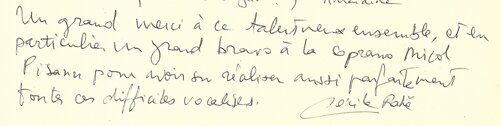 Un grand merci à ce talentueux ensemble, et en
particulier un grand bravo à la soprano Micol
Pisanu pour avoir su réaliser aussi parfaitement
toutes ces difficiles vocalises. Cécile